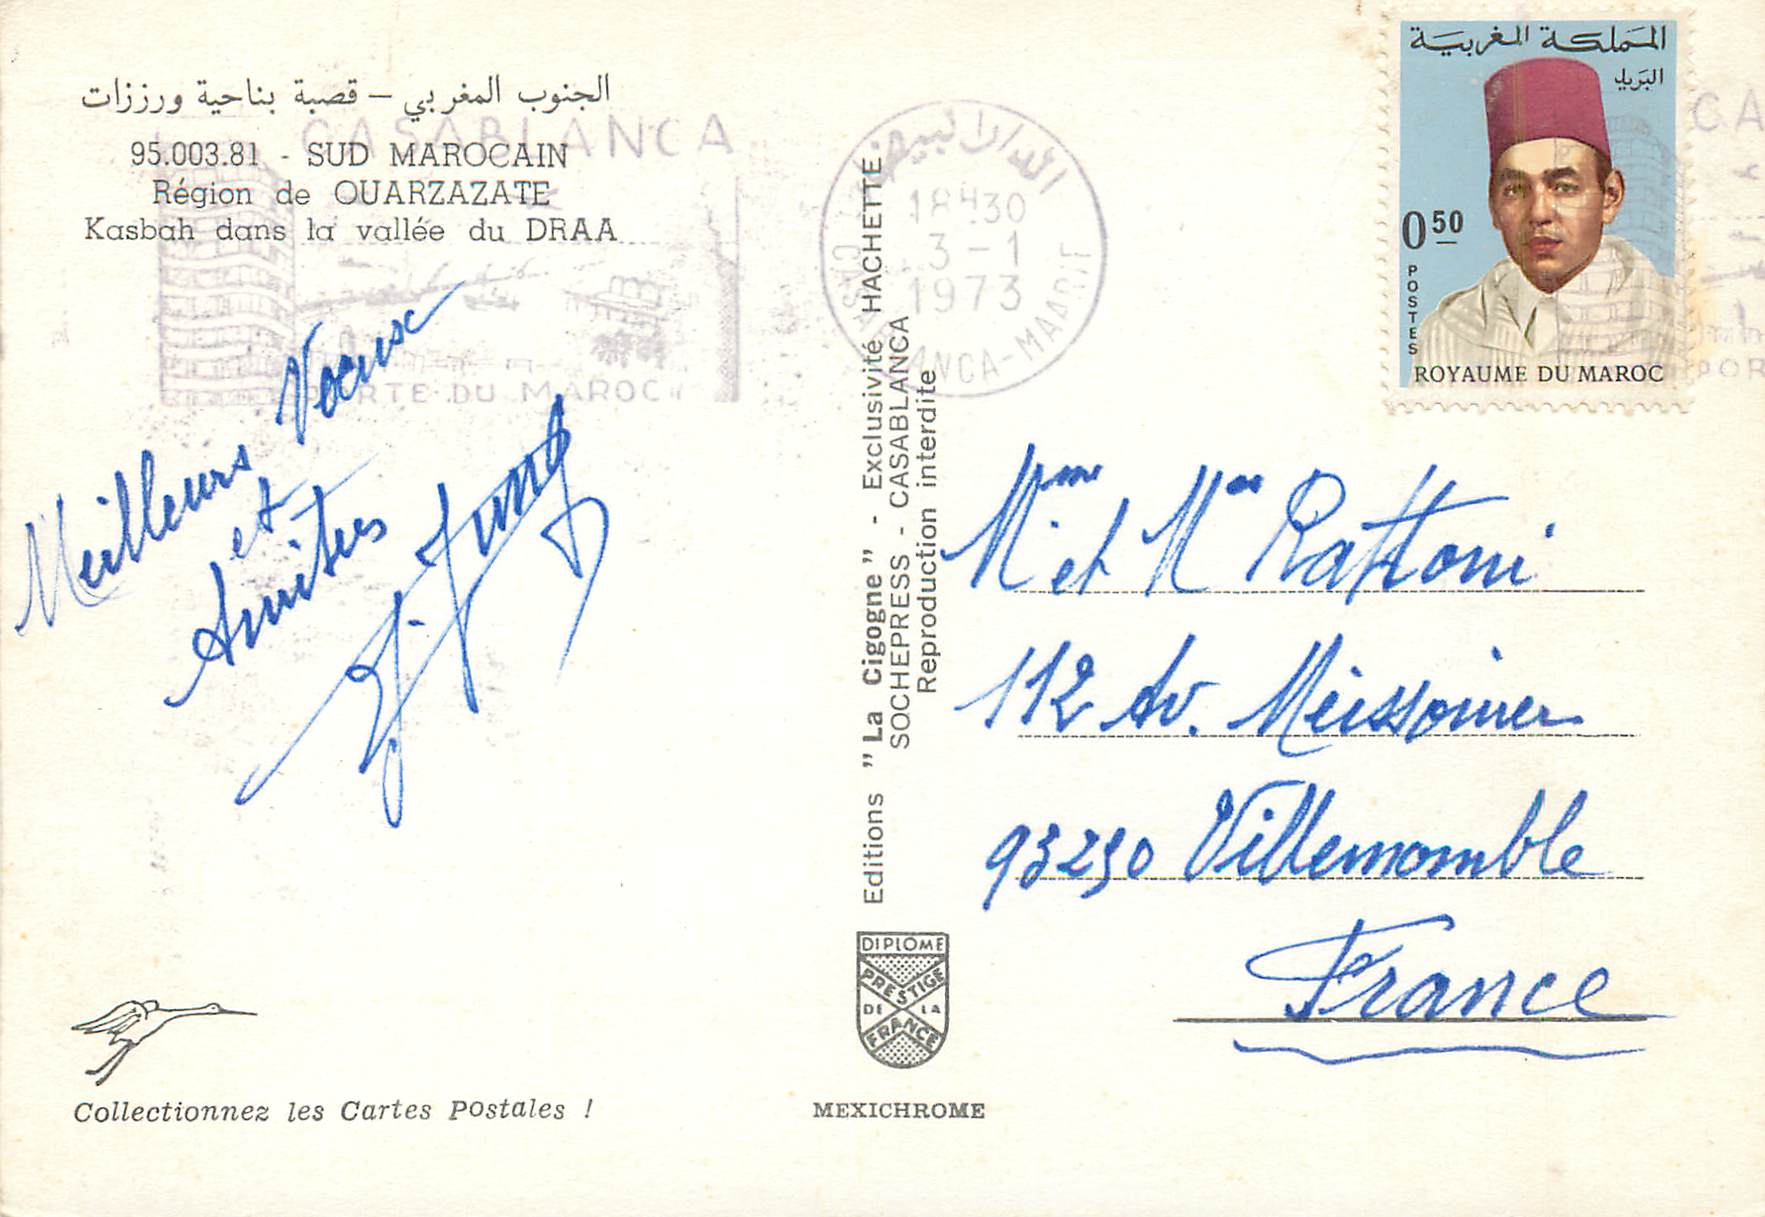 الجنوب المغربي – قصبة بناحية ورززات
95.003.81 - SUD MAROCAIN
Région de OUARZAZATE
Kasbah dans la vallée du DRAA
CASABLANCA
PORTE DU MAROC
Meilleurs Voeux
et
Amitiés
Collectionnez les Cartes Postales !
الدار البيضاء
18H30
3 - 1
1973
CASABLANCA-MAARIF
Editions "La Cigogne" - Exclusivité HACHETTE
SOCHEPRESS - CASABLANCA
Reproduction interdite
DIPLOME
PRESTIGE
DE LA
FRANCE
MEXICHROME
المملكة المغربية
البريد
0.50
POSTES
ROYAUME DU MAROC
CA
POR
Mme et Mr Rattoni
112 Av. Meissonier
93250 Villemomble
France